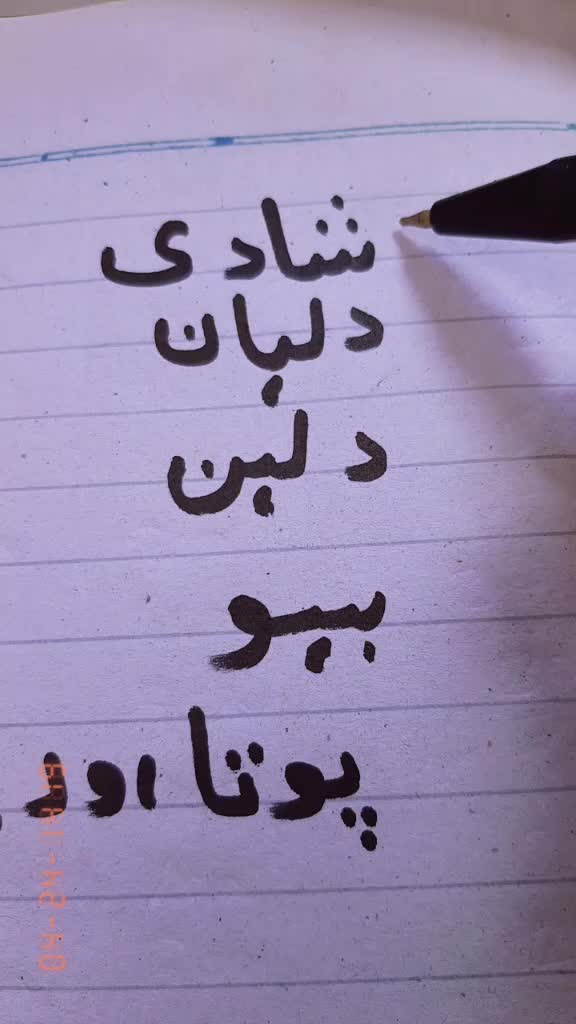 شادی
دلہان
دلہن
بیبو
پوتا اور